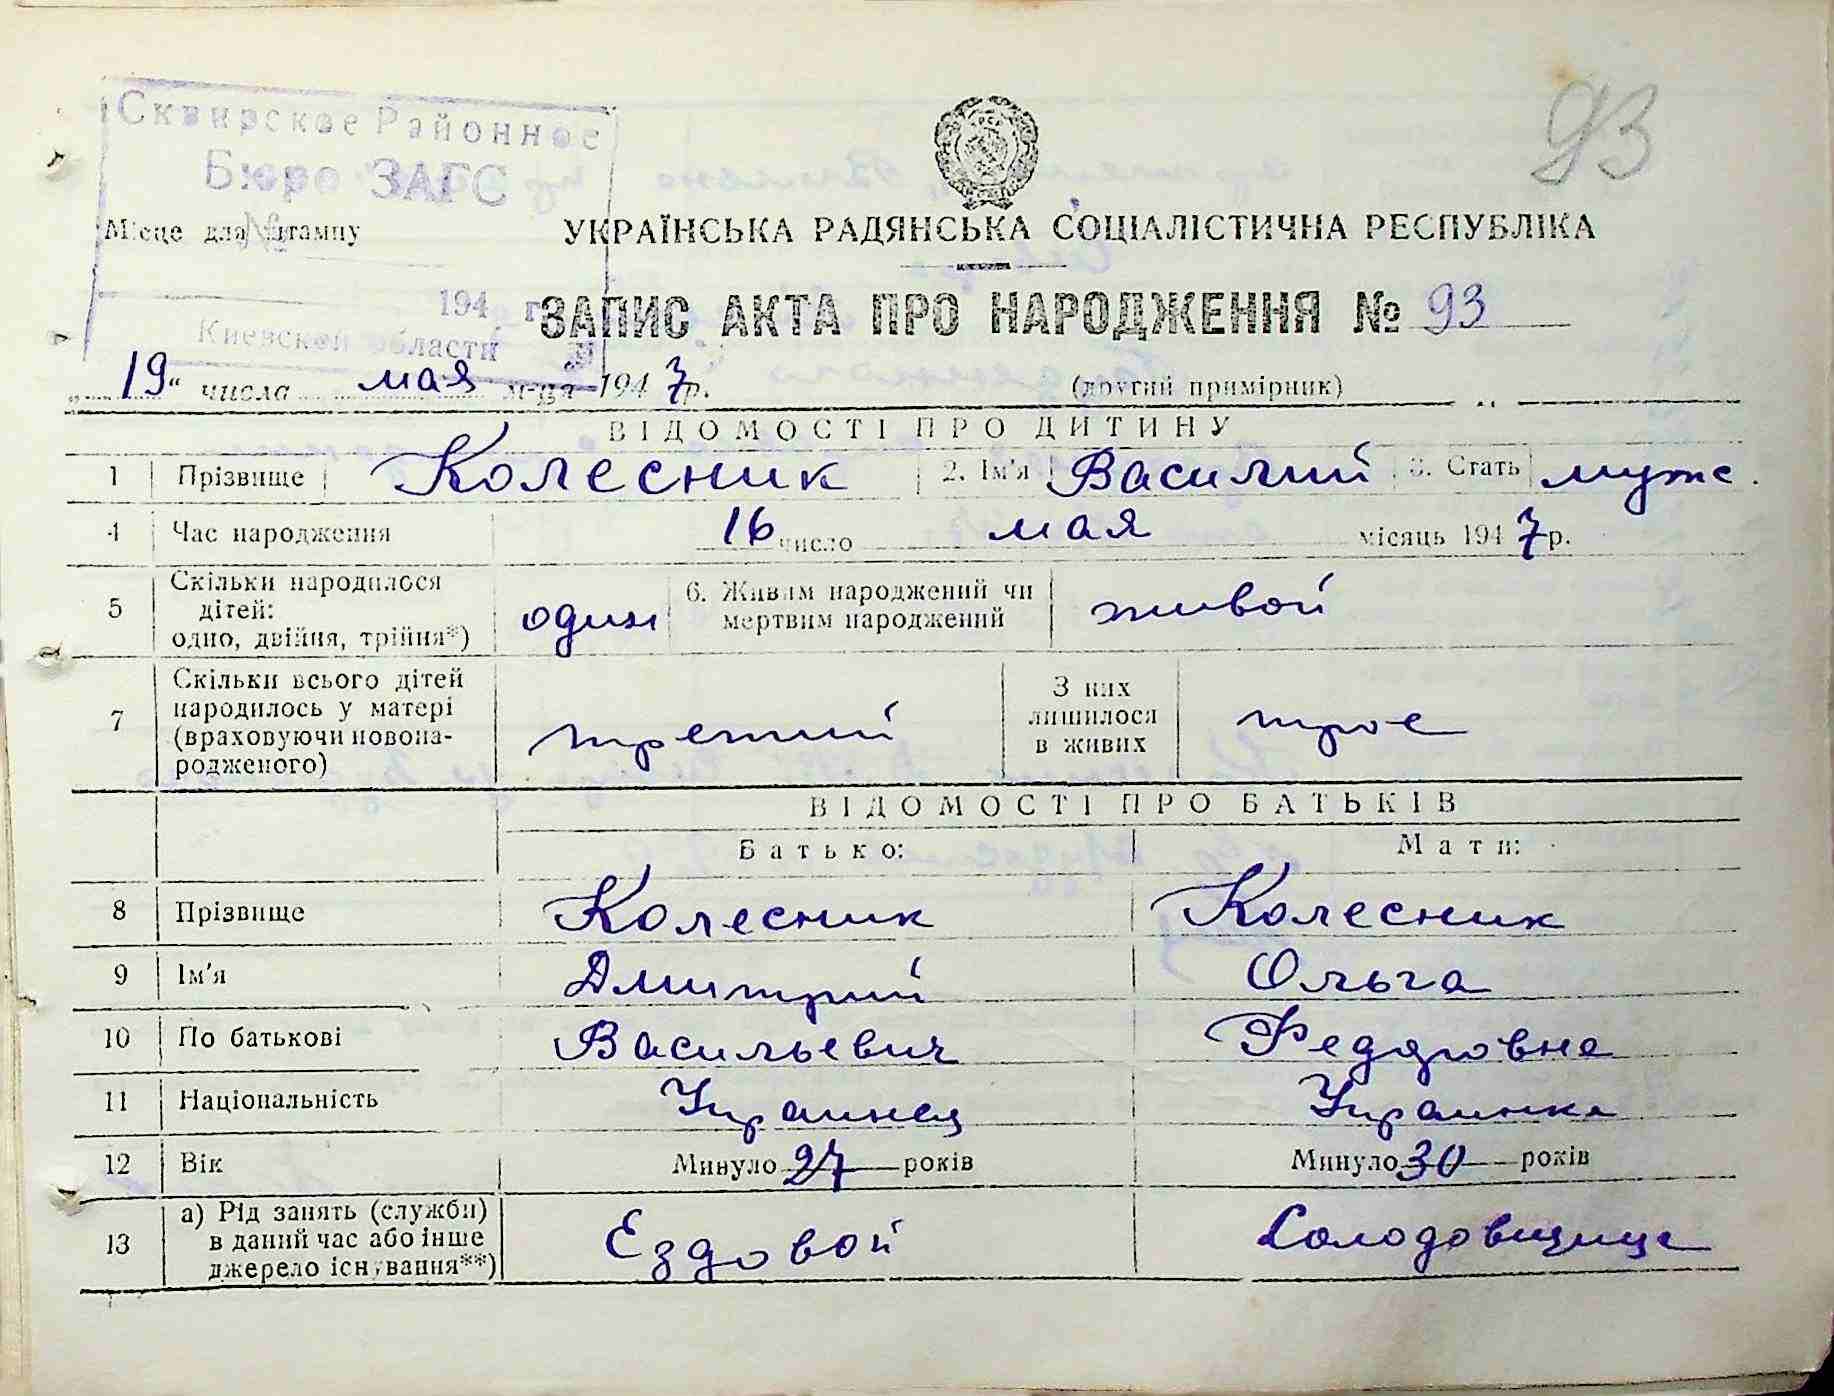 93
Сквирское Районное
Бюро ЗАГС
Місце для штампу
№
194 г.
Киевской области
УКРАЇНСЬКА РАДЯНСЬКА СОЦІАЛІСТИЧНА РЕСПУБЛІКА
ЗАПИС АКТА ПРО НАРОДЖЕННЯ № 93
„19“ числа мая м-ця 1947р.
(другий примірник)
ВІДОМОСТІ ПРО ДИТИНУ
1 Прізвище Колесник 2. Ім'я Василий 3. Стать муже.
4 Час народження 16 число мая місяць 1947р.
5 Скільки народилося дітей: одно, двійня, трійня*) один 6. Живим народжений чи мертвим народжений живой
7 Скільки всього дітей народилось у матері (враховуючи новонародженого) третий З них лишилося в живих трое
ВІДОМОСТІ ПРО БАТЬКІВ
Батько: Мати:
8 Прізвище Колесник Колесник
9 Ім'я Дмитрий Ольга
10 По батькові Васильевич Федоровна
11 Національність Украинец Украинка
12 Вік Минуло 27 років Минуло 30 років
13 а) Рід занять (служби) в даний час або інше джерело існування**) Ездовой